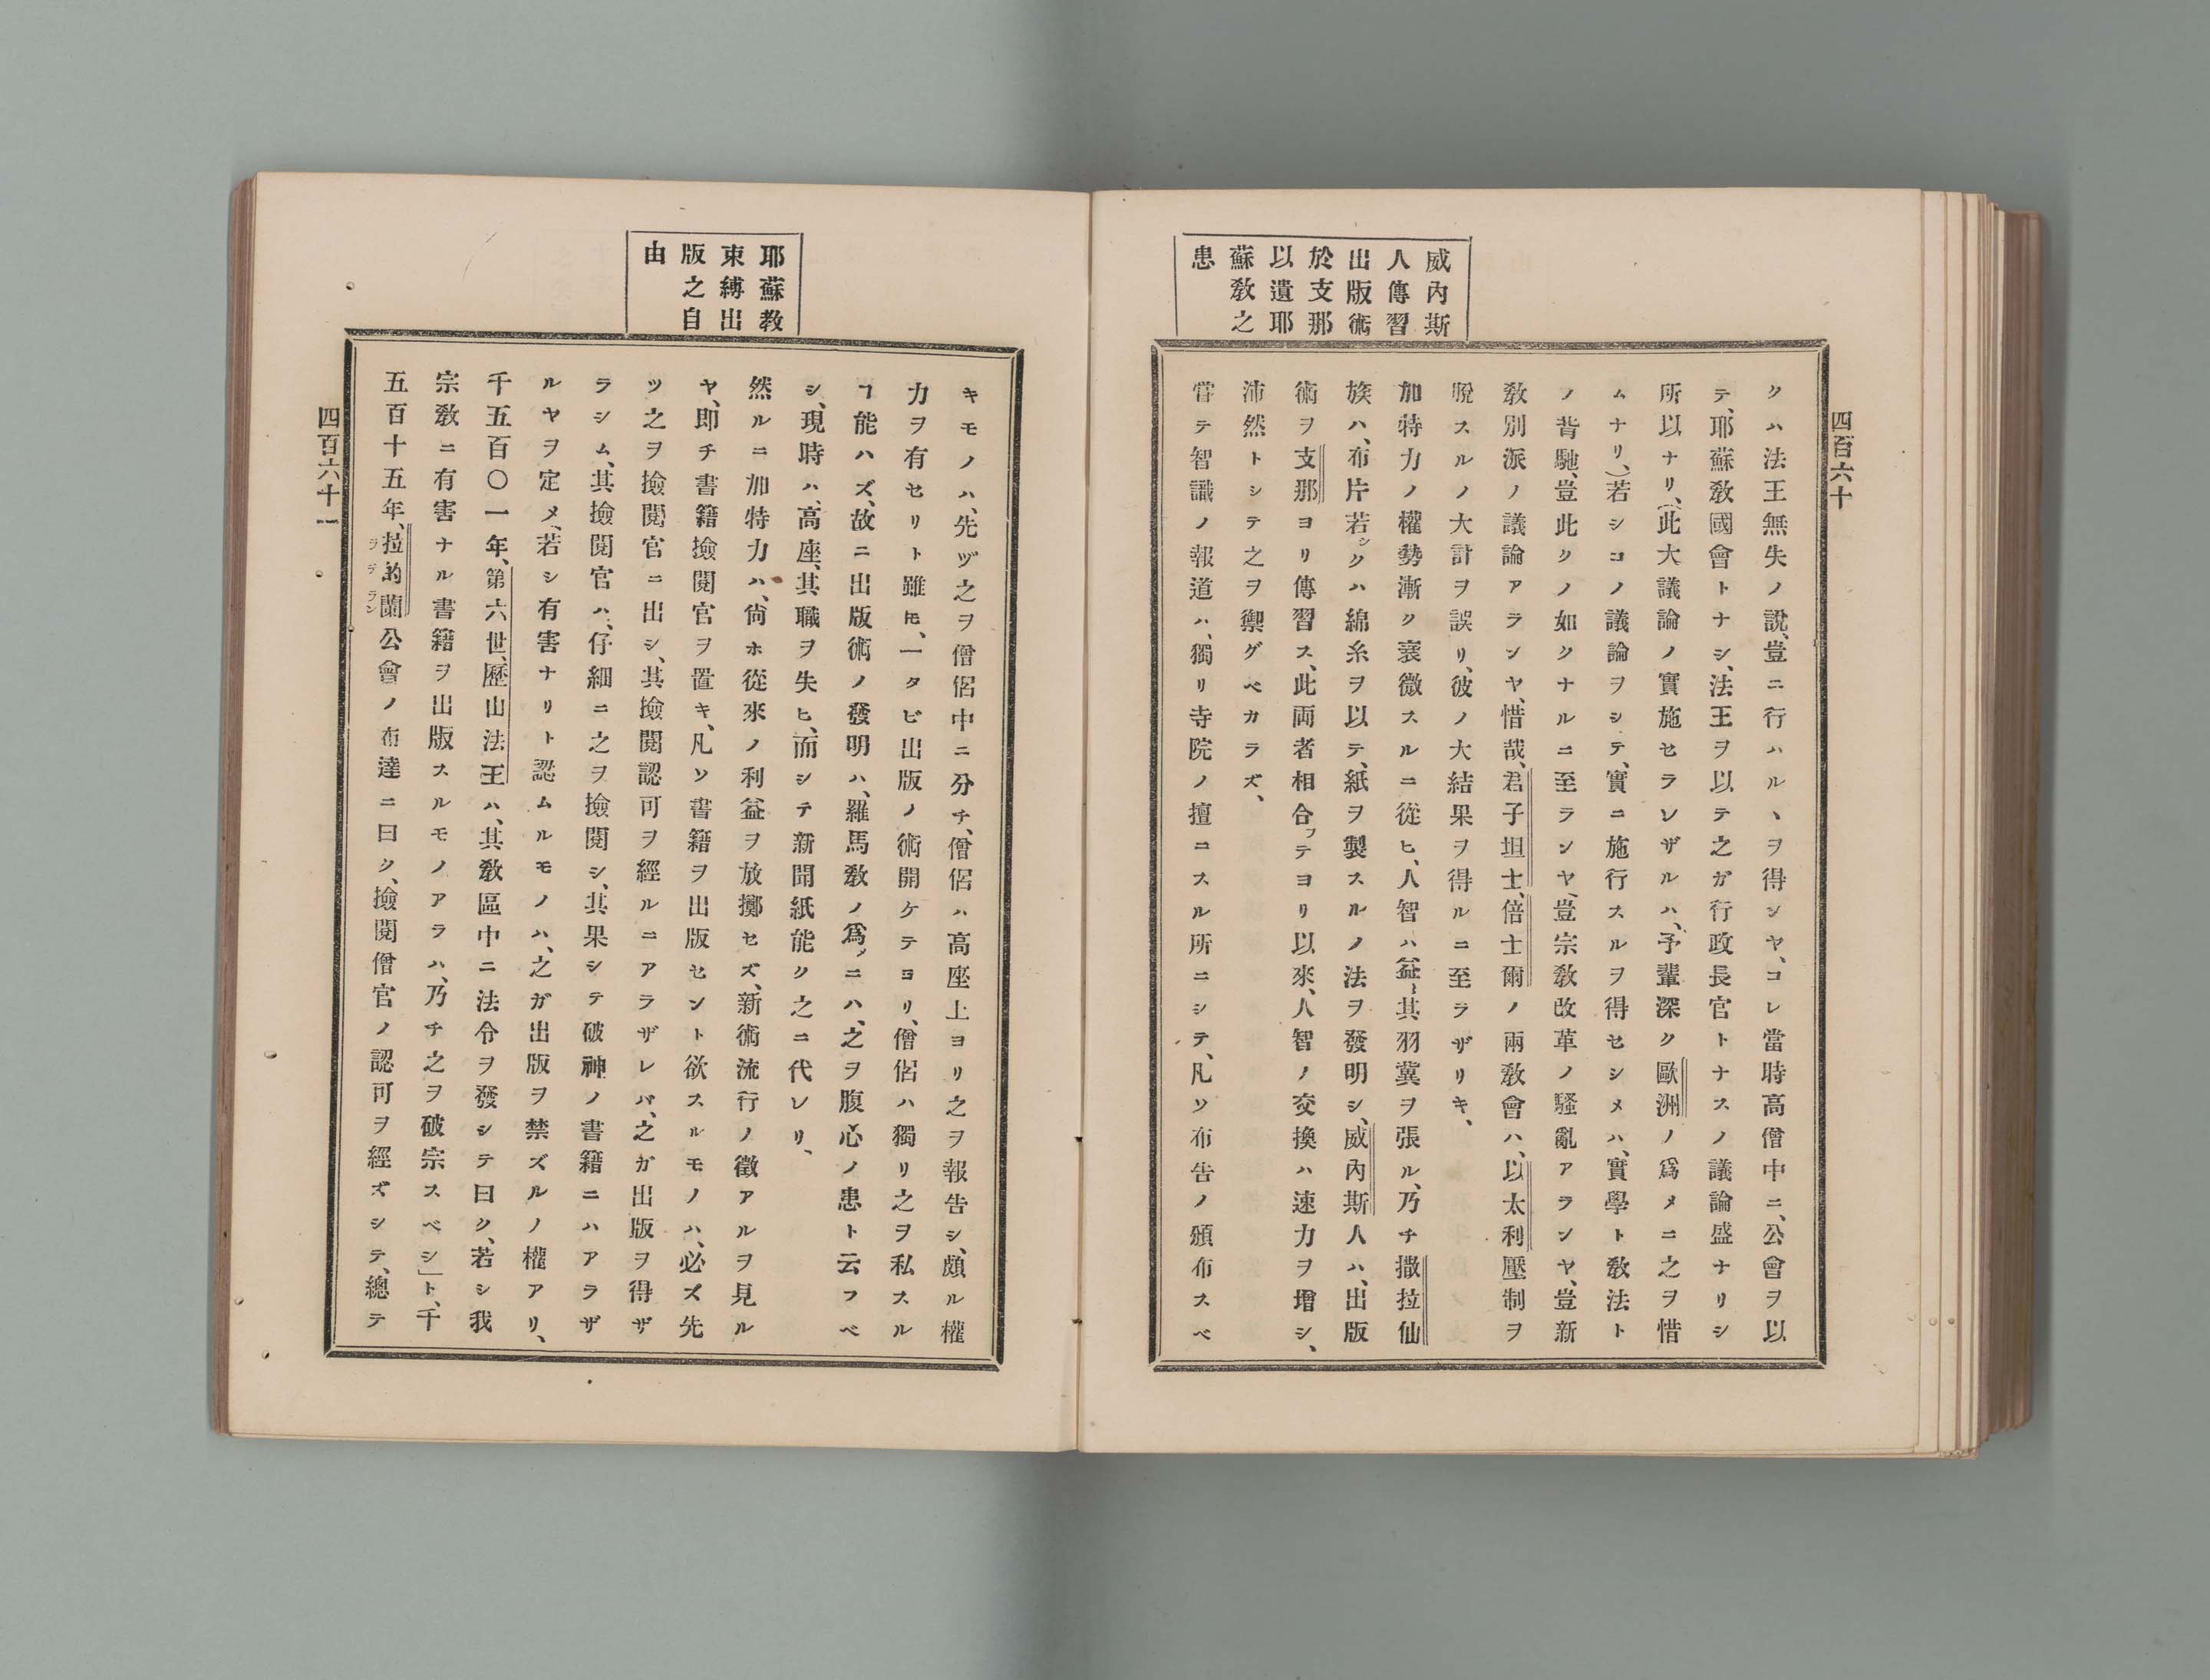 四百六十
威內斯
人傳習
出版術
於支那
以遺耶
蘇敎之
患
クハ法王無失ノ說、豈ニ行ハルヽヲ得ンヤ、コレ當時高僧中ニ、公會ヲ以
テ、耶蘇敎國會トナシ、法王ヲ以テ之ガ行政長官トナスノ議論盛ナリシ
所以ナリ、(此大議論ノ實施セラレザルハ、予輩深ク歐洲ノ爲メニ之ヲ惜
ムナリ、)若シコノ議論ヲシテ、實ニ施行スルヲ得セシメハ、實學ト敎法ト
ノ背馳、豈此クノ如クナルニ至ランヤ、豈宗敎改革ノ騷亂アランヤ、豈新
敎別派ノ議論アランヤ、惜哉、君子坦士、倍士爾ノ兩敎會ハ、以太利壓制ヲ
脫スルノ大計ヲ誤リ、彼ノ大結果ヲ得ルニ至ラザリキ、
加特力ノ權勢漸ク衰微スルニ從ヒ、人智ハ益〻其羽翼ヲ張ル、乃チ撒拉仙
族ハ、布片若シクハ綿糸ヲ以テ、紙ヲ製スルノ法ヲ發明シ、威內斯人ハ、出版
術ヲ支那ヨリ傳習ス、此両者相合フテヨリ以來、人智ノ交換ハ速力ヲ增シ、
沛然トシテ之ヲ禦グベカラズ、
嘗テ智識ノ報道ハ、獨リ寺院ノ擅ニスル所ニシテ、凡ソ布告ノ頒布スベ
耶蘇敎
束縛出
版之自
由
キモノハ、先ヅ之ヲ僧侶中ニ分チ、僧侶ハ高座上ヨリ之ヲ報告シ、頗ル權
力ヲ有セリト雖𪜈、一タビ出版ノ術開ケテヨリ、僧侶ハ獨リ之ヲ私スル
ヿ能ハズ、故ニ出版術ノ發明ハ、羅馬敎ノ爲ノニハ、之ヲ腹心ノ患ト云フベ
シ、現時ハ、高座、其職ヲ失ヒ、而シテ新聞紙能ク之ニ代レリ、
然ルニ加特力ハ、尙ホ從來ノ利益ヲ放擲セズ、新術流行ノ徵アルヲ見ル
ヤ、卽チ書籍撿閱官ヲ置キ、凡ソ書籍ヲ出版セント欲スルモノハ、必ズ先
ツ之ヲ撿閱官ニ出シ、其撿閱認可ヲ經ルニアラザレバ、之ガ出版ヲ得ザ
ラシム、其撿閱官ハ、仔細ニ之ヲ撿閱シ、其果シテ破神ノ書籍ニハアラザ
ルヤヲ定メ、若シ有害ナリト認ムルモノハ、之ガ出版ヲ禁ズルノ權アリ、
千五百〇一年、第六世、歷山法王ハ、其敎區中ニ法令ヲ發シテ曰ク、若シ我
宗敎ニ有害ナル書籍ヲ出版スルモノアラハ、乃チ之ヲ破宗スベシ」ト、千
五百十五年、拉的蘭ラテラン公會ノ布達ニ曰ク、撿閱僧官ノ認可ヲ經ズシテ、總テ
四百六十一